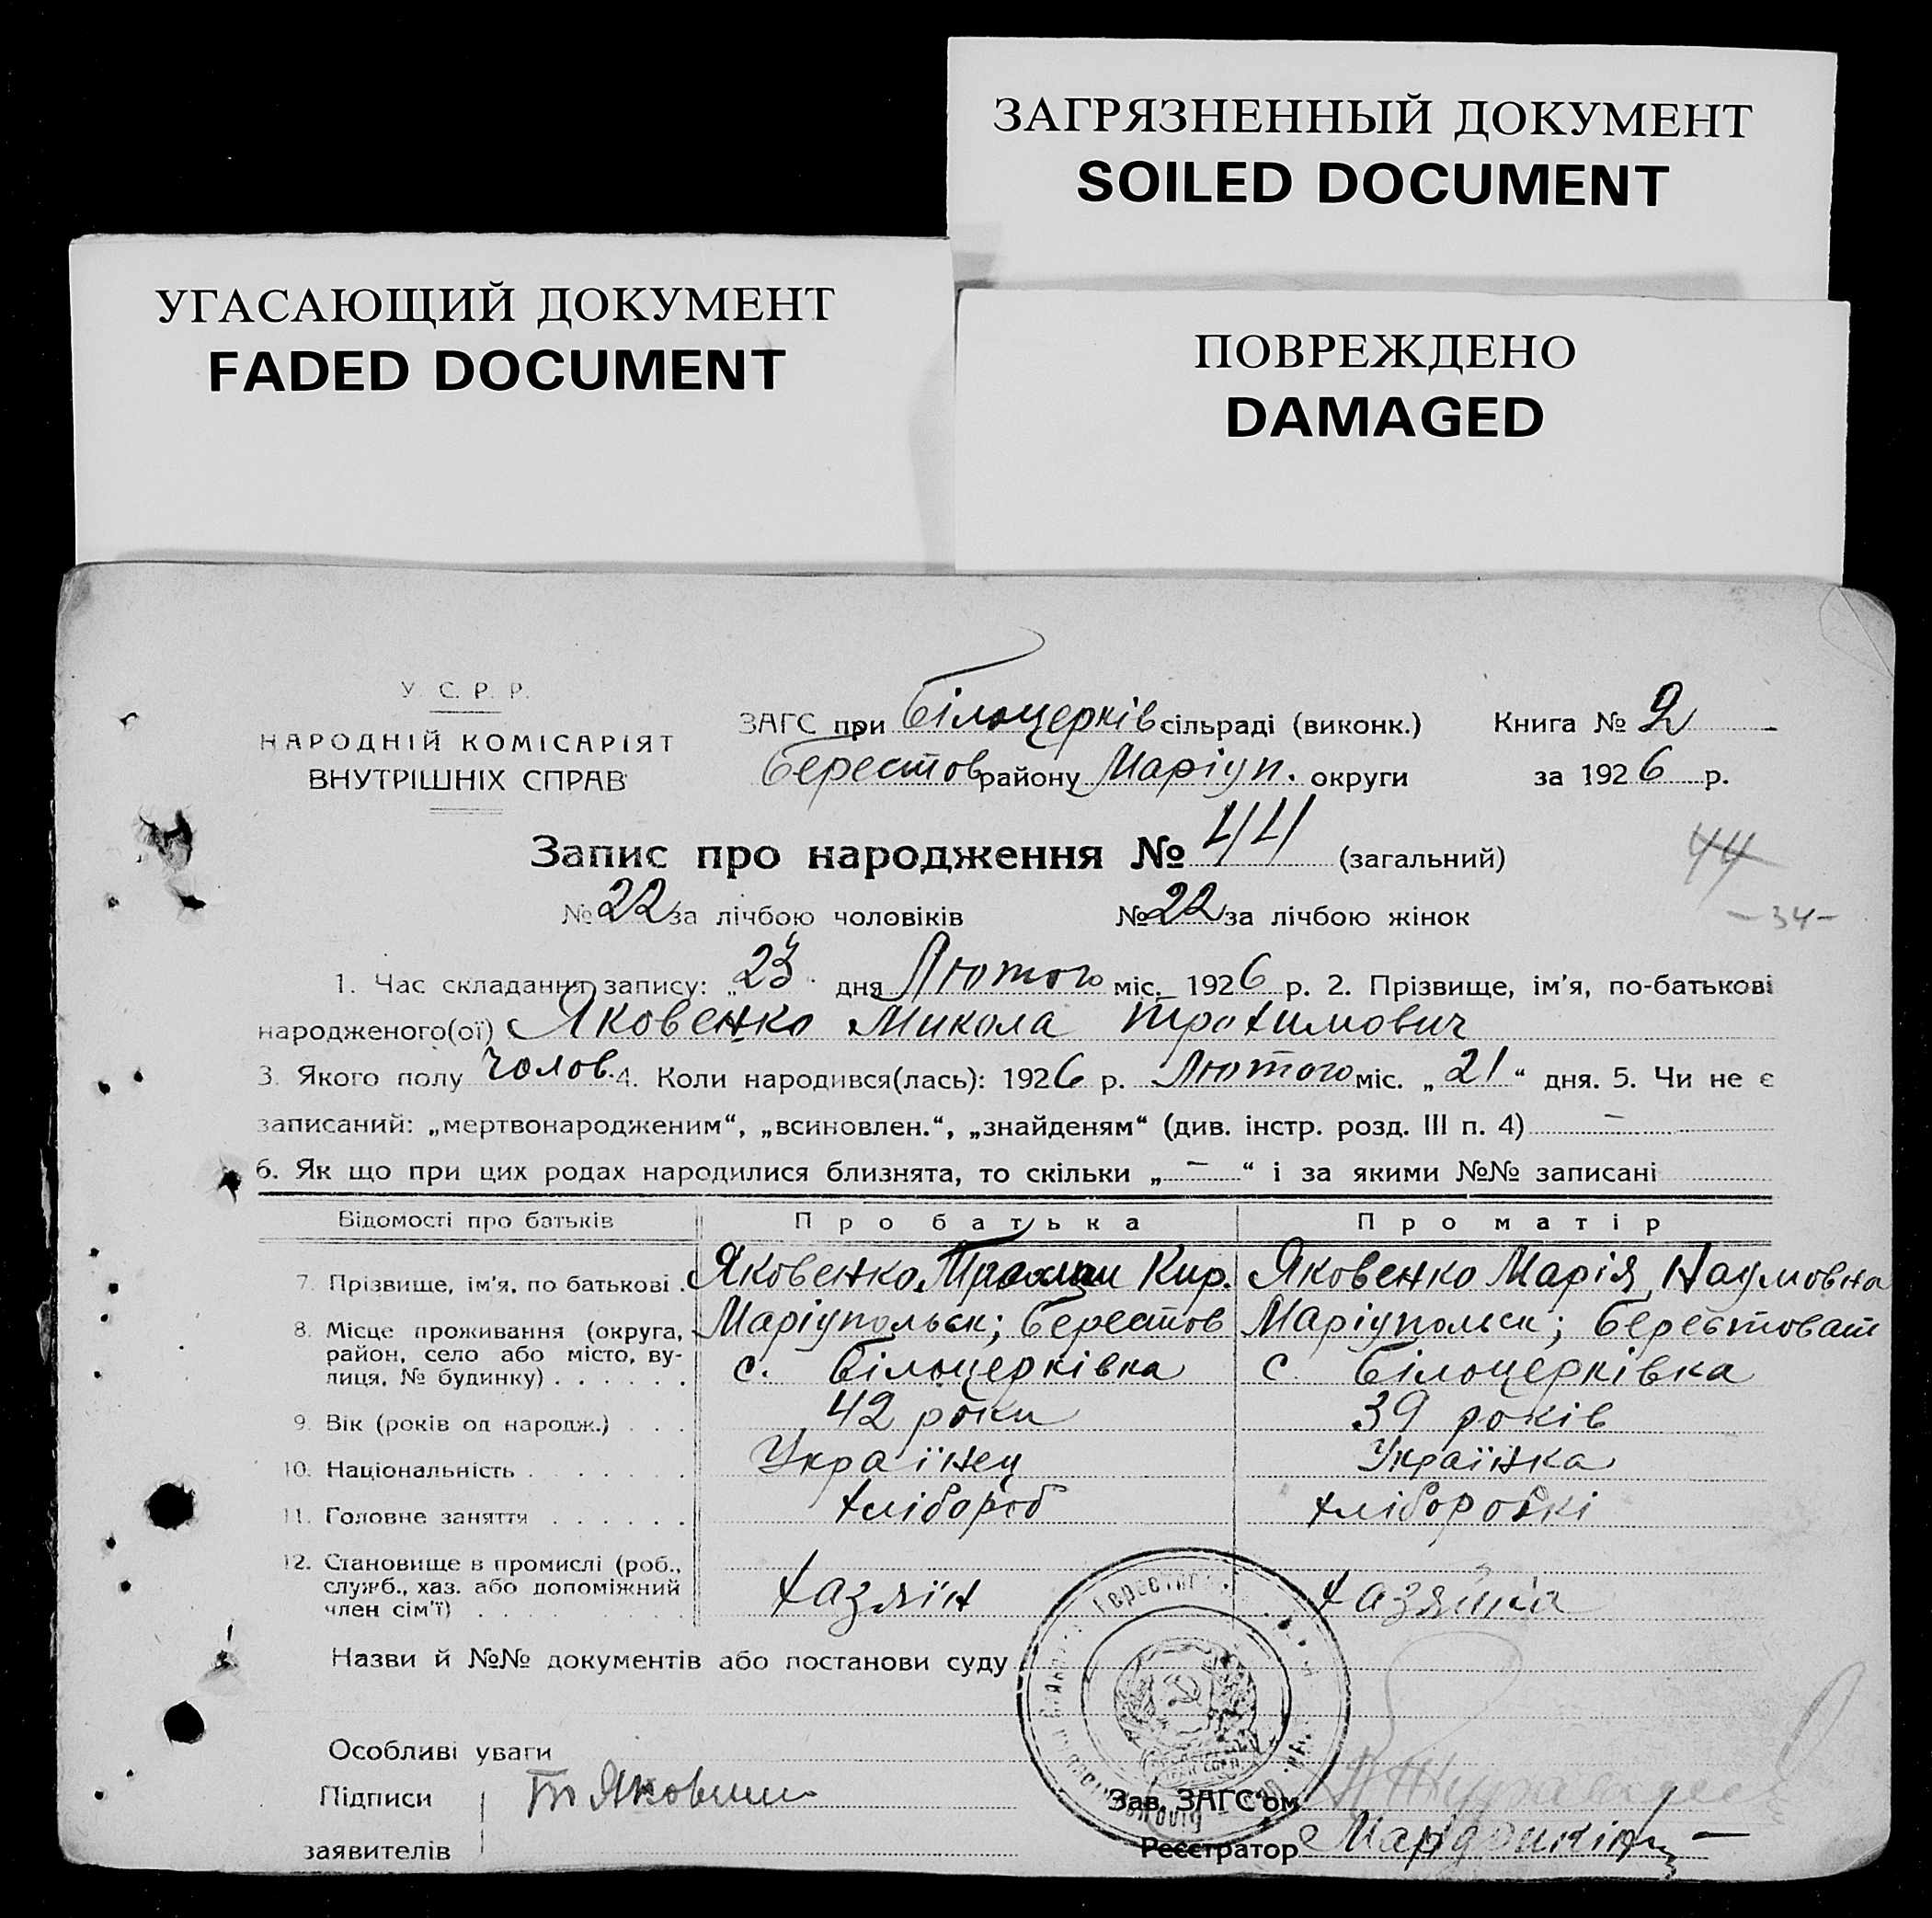 ЗАГРЯЗНЕННЫЙ ДОКУМЕНТ
SOILED DOCUMENT
УГАСАЮЩИЙ ДОКУМЕНТ
FADED DOCUMENT
ПОВРЕЖДЕНО
DAMAGED
У. С. Р. Р.
НАРОДНІЙ КОМІСАРІЯТ
ВНУТРІШНІХ СПРАВ
ЗАГС при Білоцерків сільраді (виконк.) Книга № 2
Берестов району Маріуп. округи за 1926 р.
Запис про народження № 44 (загальний)
44
№ 22 за лічбою чоловіків № 22 за лічбою жінок
- 34 -
1. Час складання запису: „23" дня Лютого міс. 1926 р. 2. Прізвище, ім'я, по-батькові
народженого(ої) Яковенко Микола Трохимович
3. Якого полу чолов. 4. Коли народився(лась): 1926 р. Лютого міс. „21" дня. 5. Чи не є
записаний: „мертвонародженим", „всиновлен.", „знайденям" (див. інстр. розд. III п. 4) —
6. Як що при цих родах народилися близнята, то скільки „—" і за якими №№ записані
Відомості про батьків Про батька Про матір
7. Прізвище, ім'я, по батькові . Яковенко Трохим Кир. Яковенко Марія Наумовна
8. Місце проживання (округа, район, село або місто, вулиця, № будинку) . . . . . . Маріупольск; Берестов Маріупольск; Берестоват
с. Білоцерківка с Білоцерківка
9. Вік (років од народж.) . . . 42 роки 39 років
10. Національність . . . . . . . Українец Українка
11. Головне заняття . . . . . . хлібороб хлібороbкі
12. Становище в промислі (роб., служб., хаз. або допоміжний член сім'ї) . . . . . . . . . хазяїн хазяйка
Назви й №№ документів або постанови суду
Особливі уваги
Підписи
заявителів
Зав. ЗАГС'ом
Реєстратор